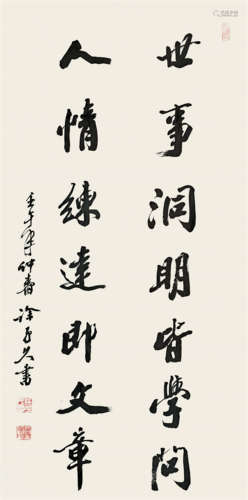 世事洞明皆學問
人情練達即文章
壬午年仲春徐子久書